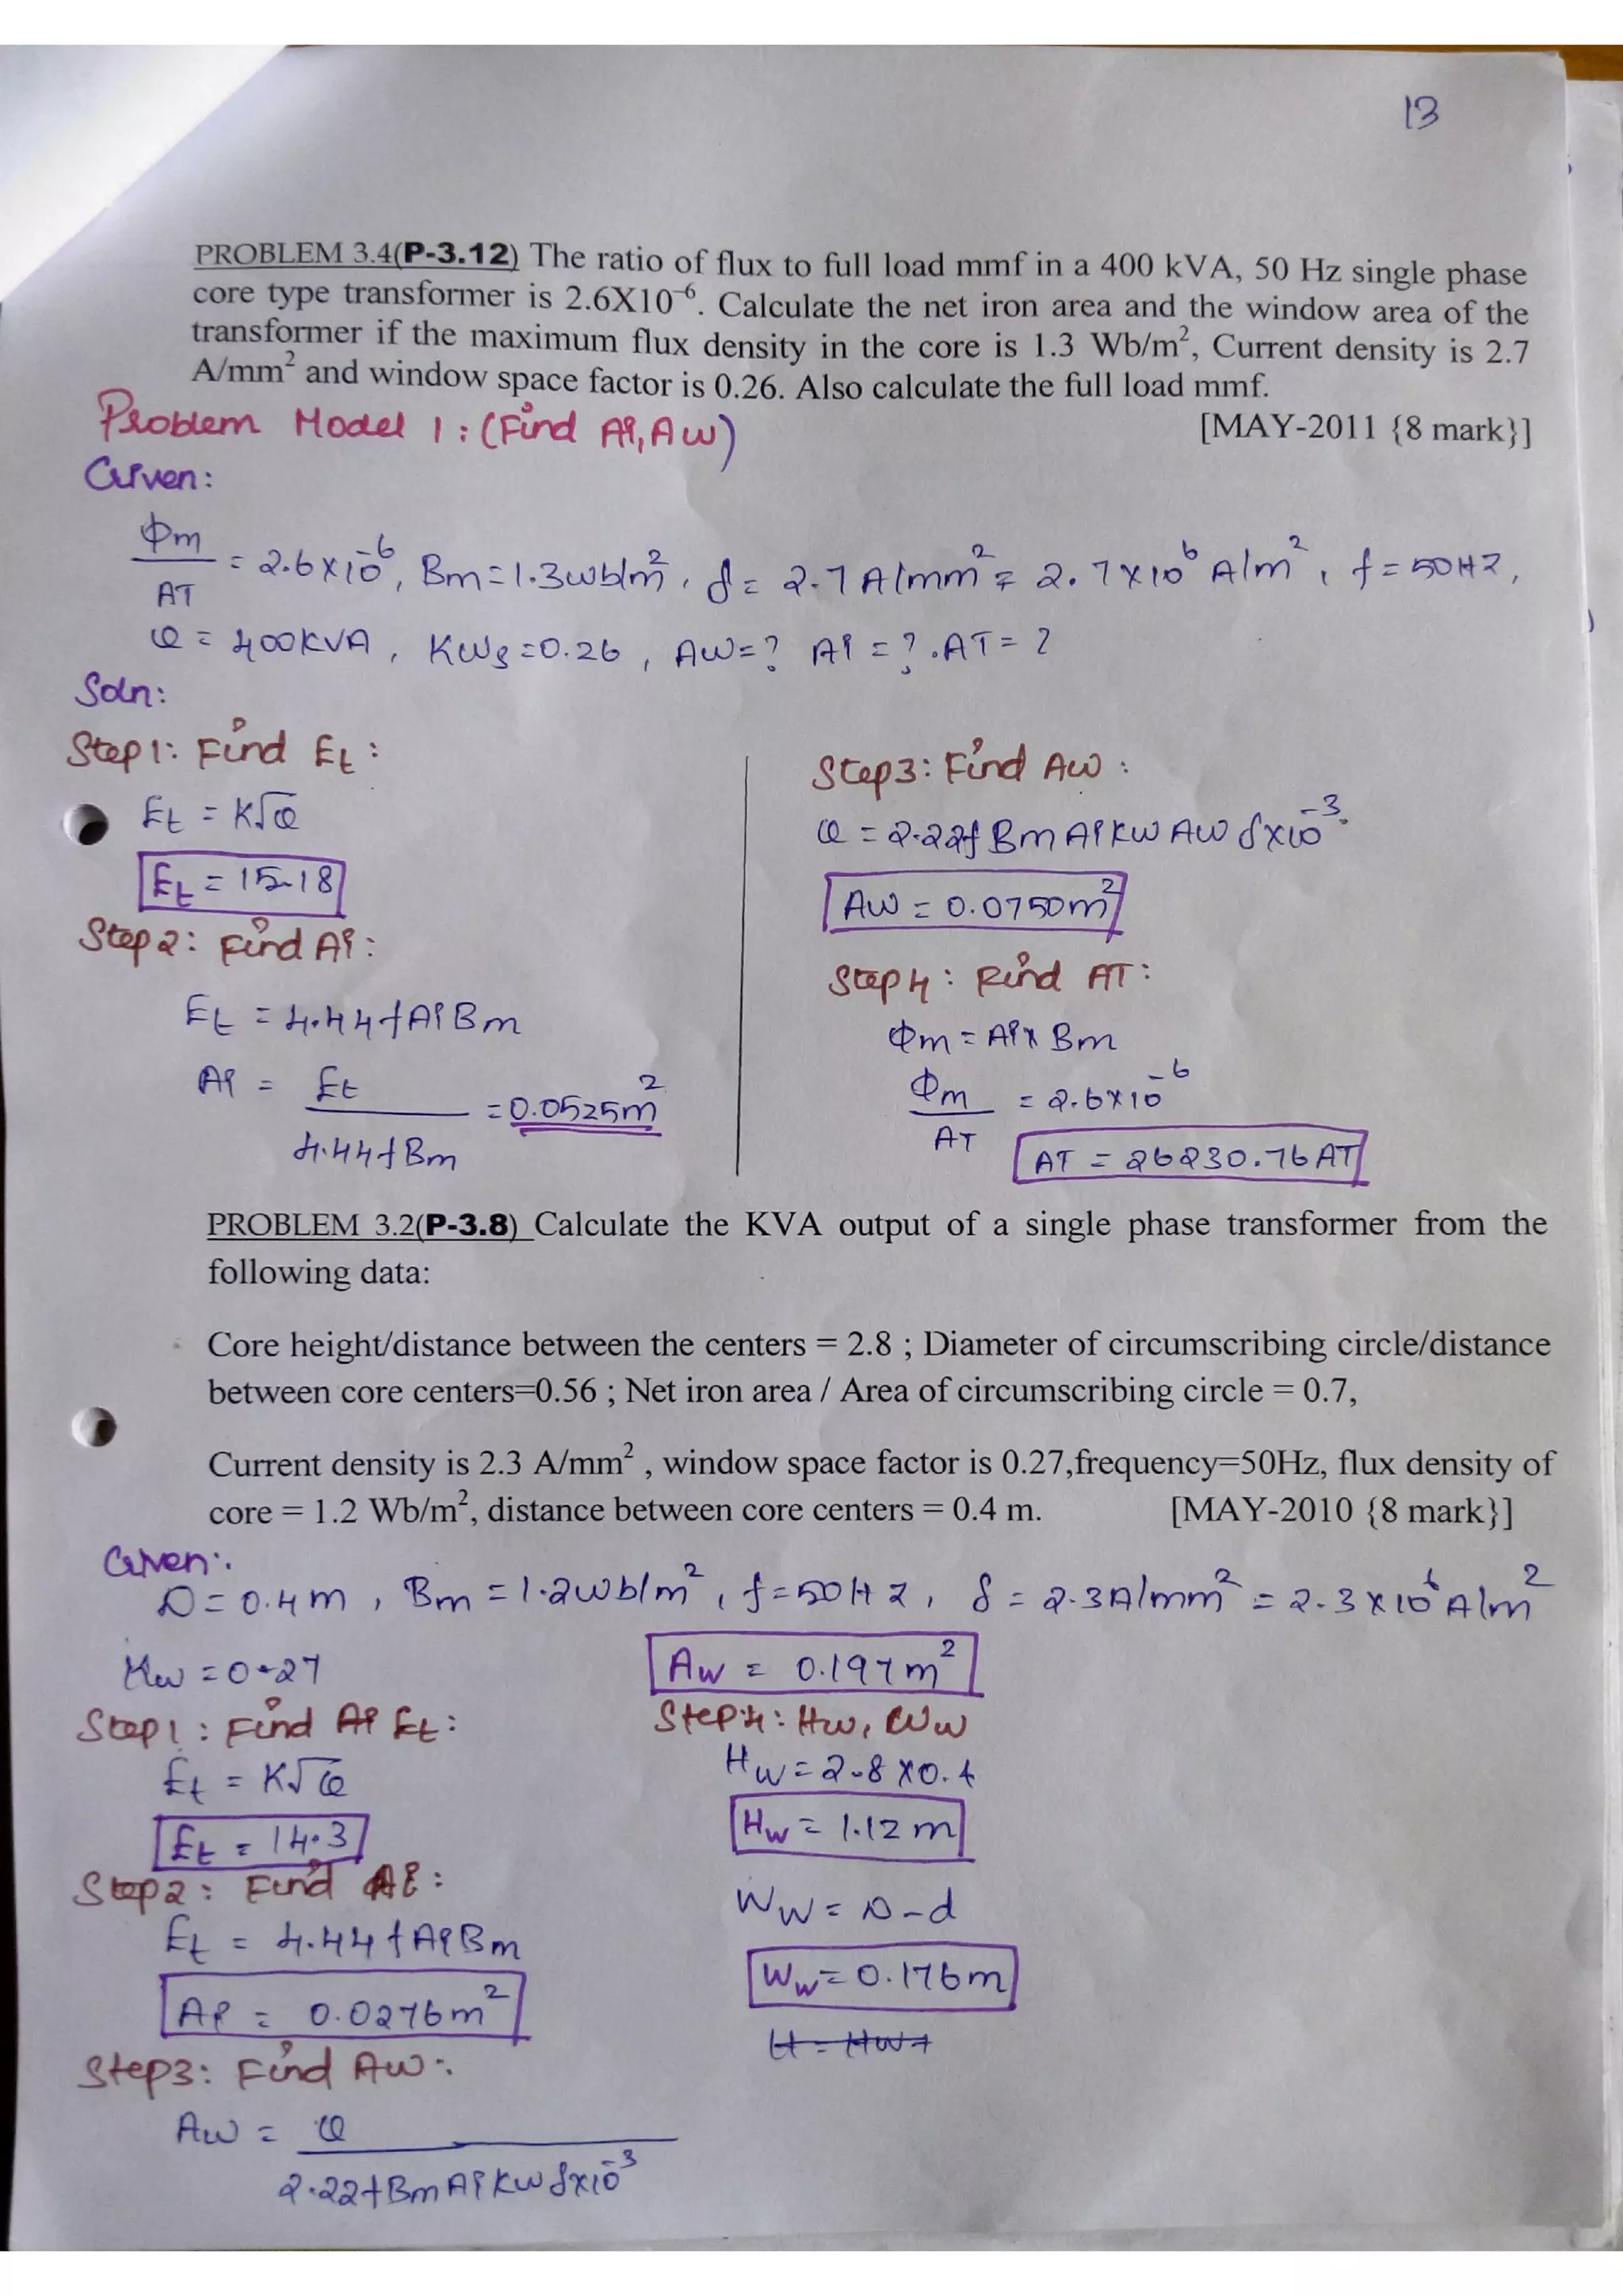 13
PROBLEM 3.4(P-3.12) The ratio of flux to full load mmf in a 400 kVA, 50 Hz single phase
core type transformer is 2.6X10⁻⁶. Calculate the net iron area and the window area of the
transformer if the maximum flux density in the core is 1.3 Wb/m², Current density is 2.7
A/mm² and window space factor is 0.26. Also calculate the full load mmf.
[MAY-2011 {8 mark}]
Problem Model 1 : (Find Ai, Aw)
Given:
Φm/AT = 2.6×10⁻⁶, Bm = 1.3wb/m², δ = 2.7 A/mm² = 2.7×10⁶ A/m², f = 50HZ,
Q = 400KVA, Kws = 0.26, Aw = ? Ai = ?. AT = ?
Soln:
Step1: Find Et :
Et = K√Q
Et = 15.18
Step2: Find Ai :
Et = 4.44fAiBm
Ai = Et / 4.44fBm = 0.0525m²
Step3: Find Aw :
Q = 2.22f Bm Ai Kw Aw δ×10⁻³.
Aw = 0.0750m²
Step4 : Find AT :
Φm = Ai x Bm
Φm/AT = 2.6×10⁻⁶
AT = 26230.76AT
PROBLEM 3.2(P-3.8) Calculate the KVA output of a single phase transformer from the
following data:
Core height/distance between the centers = 2.8 ; Diameter of circumscribing circle/distance
between core centers=0.56 ; Net iron area / Area of circumscribing circle = 0.7,
Current density is 2.3 A/mm² , window space factor is 0.27,frequency=50Hz, flux density of
core = 1.2 Wb/m², distance between core centers = 0.4 m. [MAY-2010 {8 mark}]
Given:
D = 0.4 m, Bm = 1.2wb/m², f = 50HZ, δ = 2.3A/mm² = 2.3×10⁶ A/m²
Kw = 0.27
Step1 : Find Ai Et :
Et = K√Q
Et = 14.3
Step2 : Find Ai :
Et = 4.44 f Ai Bm
Ai = 0.0276m²
Step3: Find Aw:
Aw = Q / 2.22fBmAiKwδ×10⁻³
Aw = 0.197m²
Step4: Hw, Ww
Hw = 2.8 × 0.4
Hw = 1.12 m
Ww = D-d
Ww = 0.176m
H = Hw+